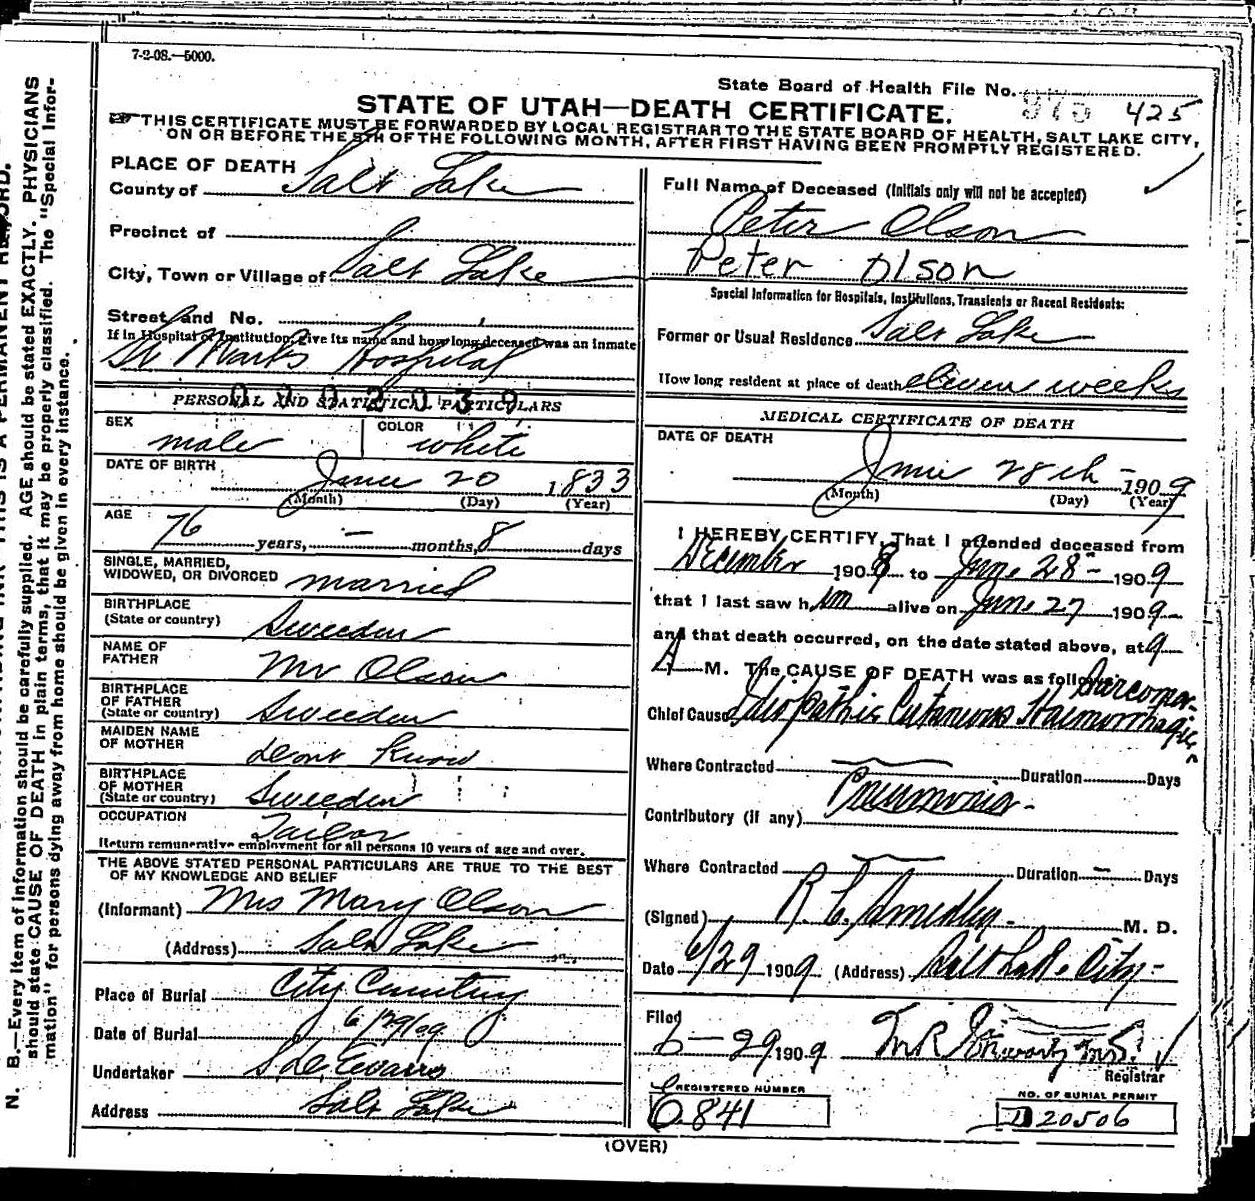 7-2-08.—5000.
State Board of Health File No. 425
STATE OF UTAH—DEATH CERTIFICATE.
THIS CERTIFICATE MUST BE FORWARDED BY LOCAL REGISTRAR TO THE STATE BOARD OF HEALTH, SALT LAKE CITY,
ON OR BEFORE THE 5TH OF THE FOLLOWING MONTH, AFTER FIRST HAVING BEEN PROMPTLY REGISTERED.
PLACE OF DEATH
County of Salt Lake
Precinct of
City, Town or Village of Salt Lake
Street and No.
If in Hospital or Institution, give its name and how long deceased was an inmate
St Marks Hospital
0002039
PERSONAL AND STATISTICAL PARTICULARS
SEX male COLOR white
DATE OF BIRTH June 20 1833
(Month) (Day) (Year)
AGE 76 years, — months, 8 days
SINGLE, MARRIED,
WIDOWED, OR DIVORCED married
BIRTHPLACE
(State or country) Sweeden
NAME OF
FATHER Mr Olson
BIRTHPLACE
OF FATHER
(State or country) Sweeden
MAIDEN NAME
OF MOTHER dont Know
BIRTHPLACE
OF MOTHER
(State or country) Sweeden
OCCUPATION Tailor
Return remunerative employment for all persons 10 years of age and over.
THE ABOVE STATED PERSONAL PARTICULARS ARE TRUE TO THE BEST
OF MY KNOWLEDGE AND BELIEF
(Informant) Mrs Mary Olson
(Address) Salt Lake
Place of Burial City Cemetery
Date of Burial 6/29/09
Undertaker Evans
Address Salt Lake
Full Name of Deceased (Initials only will not be accepted)
Peter Olson
Peter Olson
Special Information for Hospitals, Institutions, Transients or Recent Residents:
Former or Usual Residence Salt Lake
How long resident at place of death eleven weeks
MEDICAL CERTIFICATE OF DEATH
DATE OF DEATH
June 28th - 1909
(Month) (Day) (Year)
I HEREBY CERTIFY, That I attended deceased from
December 1908 to June 28- 1909
that I last saw him alive on June 27 1909
and that death occurred, on the date stated above, at 9
A M. The CAUSE OF DEATH was as follows:
Sarcoma-
Chief Cause Idiopathic Cutaneous Haemorrhagic
Where Contracted — Duration Days
Contributory (if any) Pneumonia-
Where Contracted — Duration — Days
(Signed) M. D.
Date 6/29 1909 (Address) Salt Lake City-
Filed
6-29 1909
Registrar
REGISTERED NUMBER
O.841
NO. OF BURIAL PERMIT
D 20506
(OVER)
N. B.—Every item of information should be carefully supplied. AGE should be stated EXACTLY. PHYSICIANS
should state CAUSE OF DEATH in plain terms, that it may be properly classified. The "Special Infor-
mation" for persons dying away from home should be given in every instance.